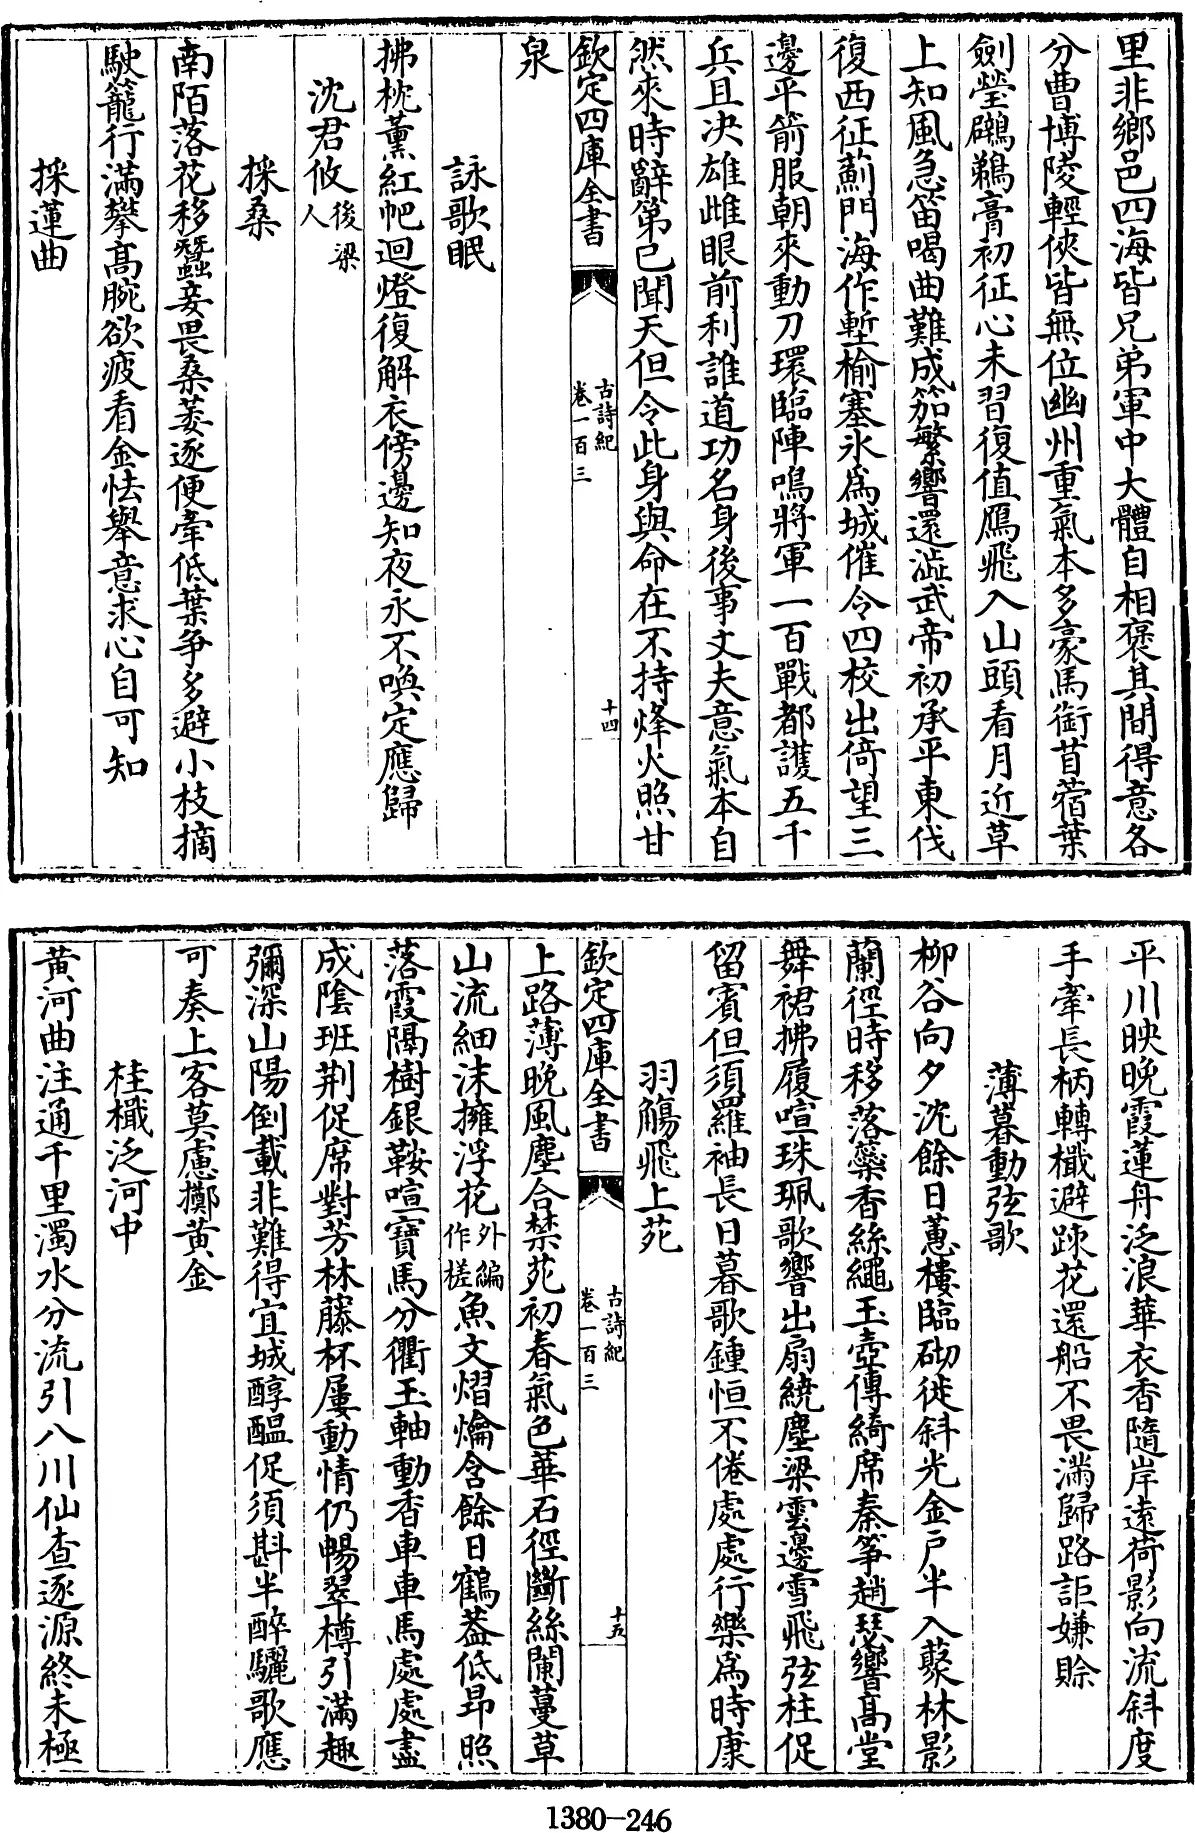 里非鄉邑四海皆兄弟軍中大體自相褒其間得意各
分曹博陵輕俠皆無位幽州重氣本多豪馬銜苜蓿葉
劍瑩鸊鵜膏初征心未習復值鴈飛入山頭看月近草
上知風急笛喝曲難成笳繁響還澁武帝初承平東伐
復西征薊門海作塹榆塞氷爲城催令四校出倚望三
邊平箭服朝來動刀環臨陣鳴將軍一百戰都䕶五千
兵且决雄雌眼前利誰道功名身後事丈夫意氣本自
然來時辭第已聞天但令此身與命在不持烽火照甘
欽定四庫全書
古詩紀
卷一百三
十四
泉
詠歌眠
拂枕薰紅帊迴燈復解衣傍邊知夜永不喚定應歸
沈君攸後梁人
採桑
南陌落花移蠶妾畏桑萎逐便牽低葉争多避小枝摘
駛籠行滿攀高腕欲疲看金怯舉意求心自可知
採蓮曲
平川映晚霞蓮舟泛浪華衣香隨岸遠荷影向流斜度
手牽長柄轉檝避疎花還船不畏滿歸路詎嫌賒
薄暮動弦歌
柳谷向夕沈餘日蕙樓臨砌徙斜光金戸半入藂林影
蘭徑時移落蘂香絲繩玉壺傳綺席秦箏趙瑟響高堂
舞裙拂履喧珠珮歌響出扇繞塵梁雲邊雪飛弦柱促
留賓但須羅袖長日暮歌鍾恒不倦處處行樂爲時康
羽觴飛上苑
欽定四庫全書
古詩紀
卷一百三
十五
上路薄晚風塵合禁苑初春氣色華石徑斷絲闌蔓草
山流細沫擁浮花外編作槎魚文熠爚含餘日鶴葢低昂照
落霞隔樹銀鞍喧寶馬分衢玉軸動香車車馬處處盡
成陰班荆促席對芳林藤杯屢動情仍暢翠樽引滿趣
彌深山陽倒載非難得宜城醇醖促須斟半醉驪歌應
可奏上客莫慮擲黄金
桂檝泛河中
黄河曲注通千里濁水分流引八川仙查逐源終未極
1380-246